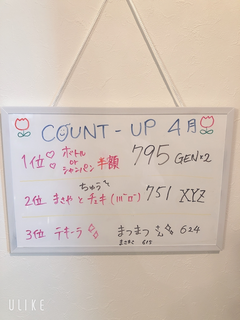 COUNT-UP 4月
1位♡ ボトル or シャンパン 半額 795 GEN×2
ちゅう
2位 まさや と チェキ(川ﾟﾛﾟ) 751 XYZ
3位 テキーラ まつきつ 624
ULIKE